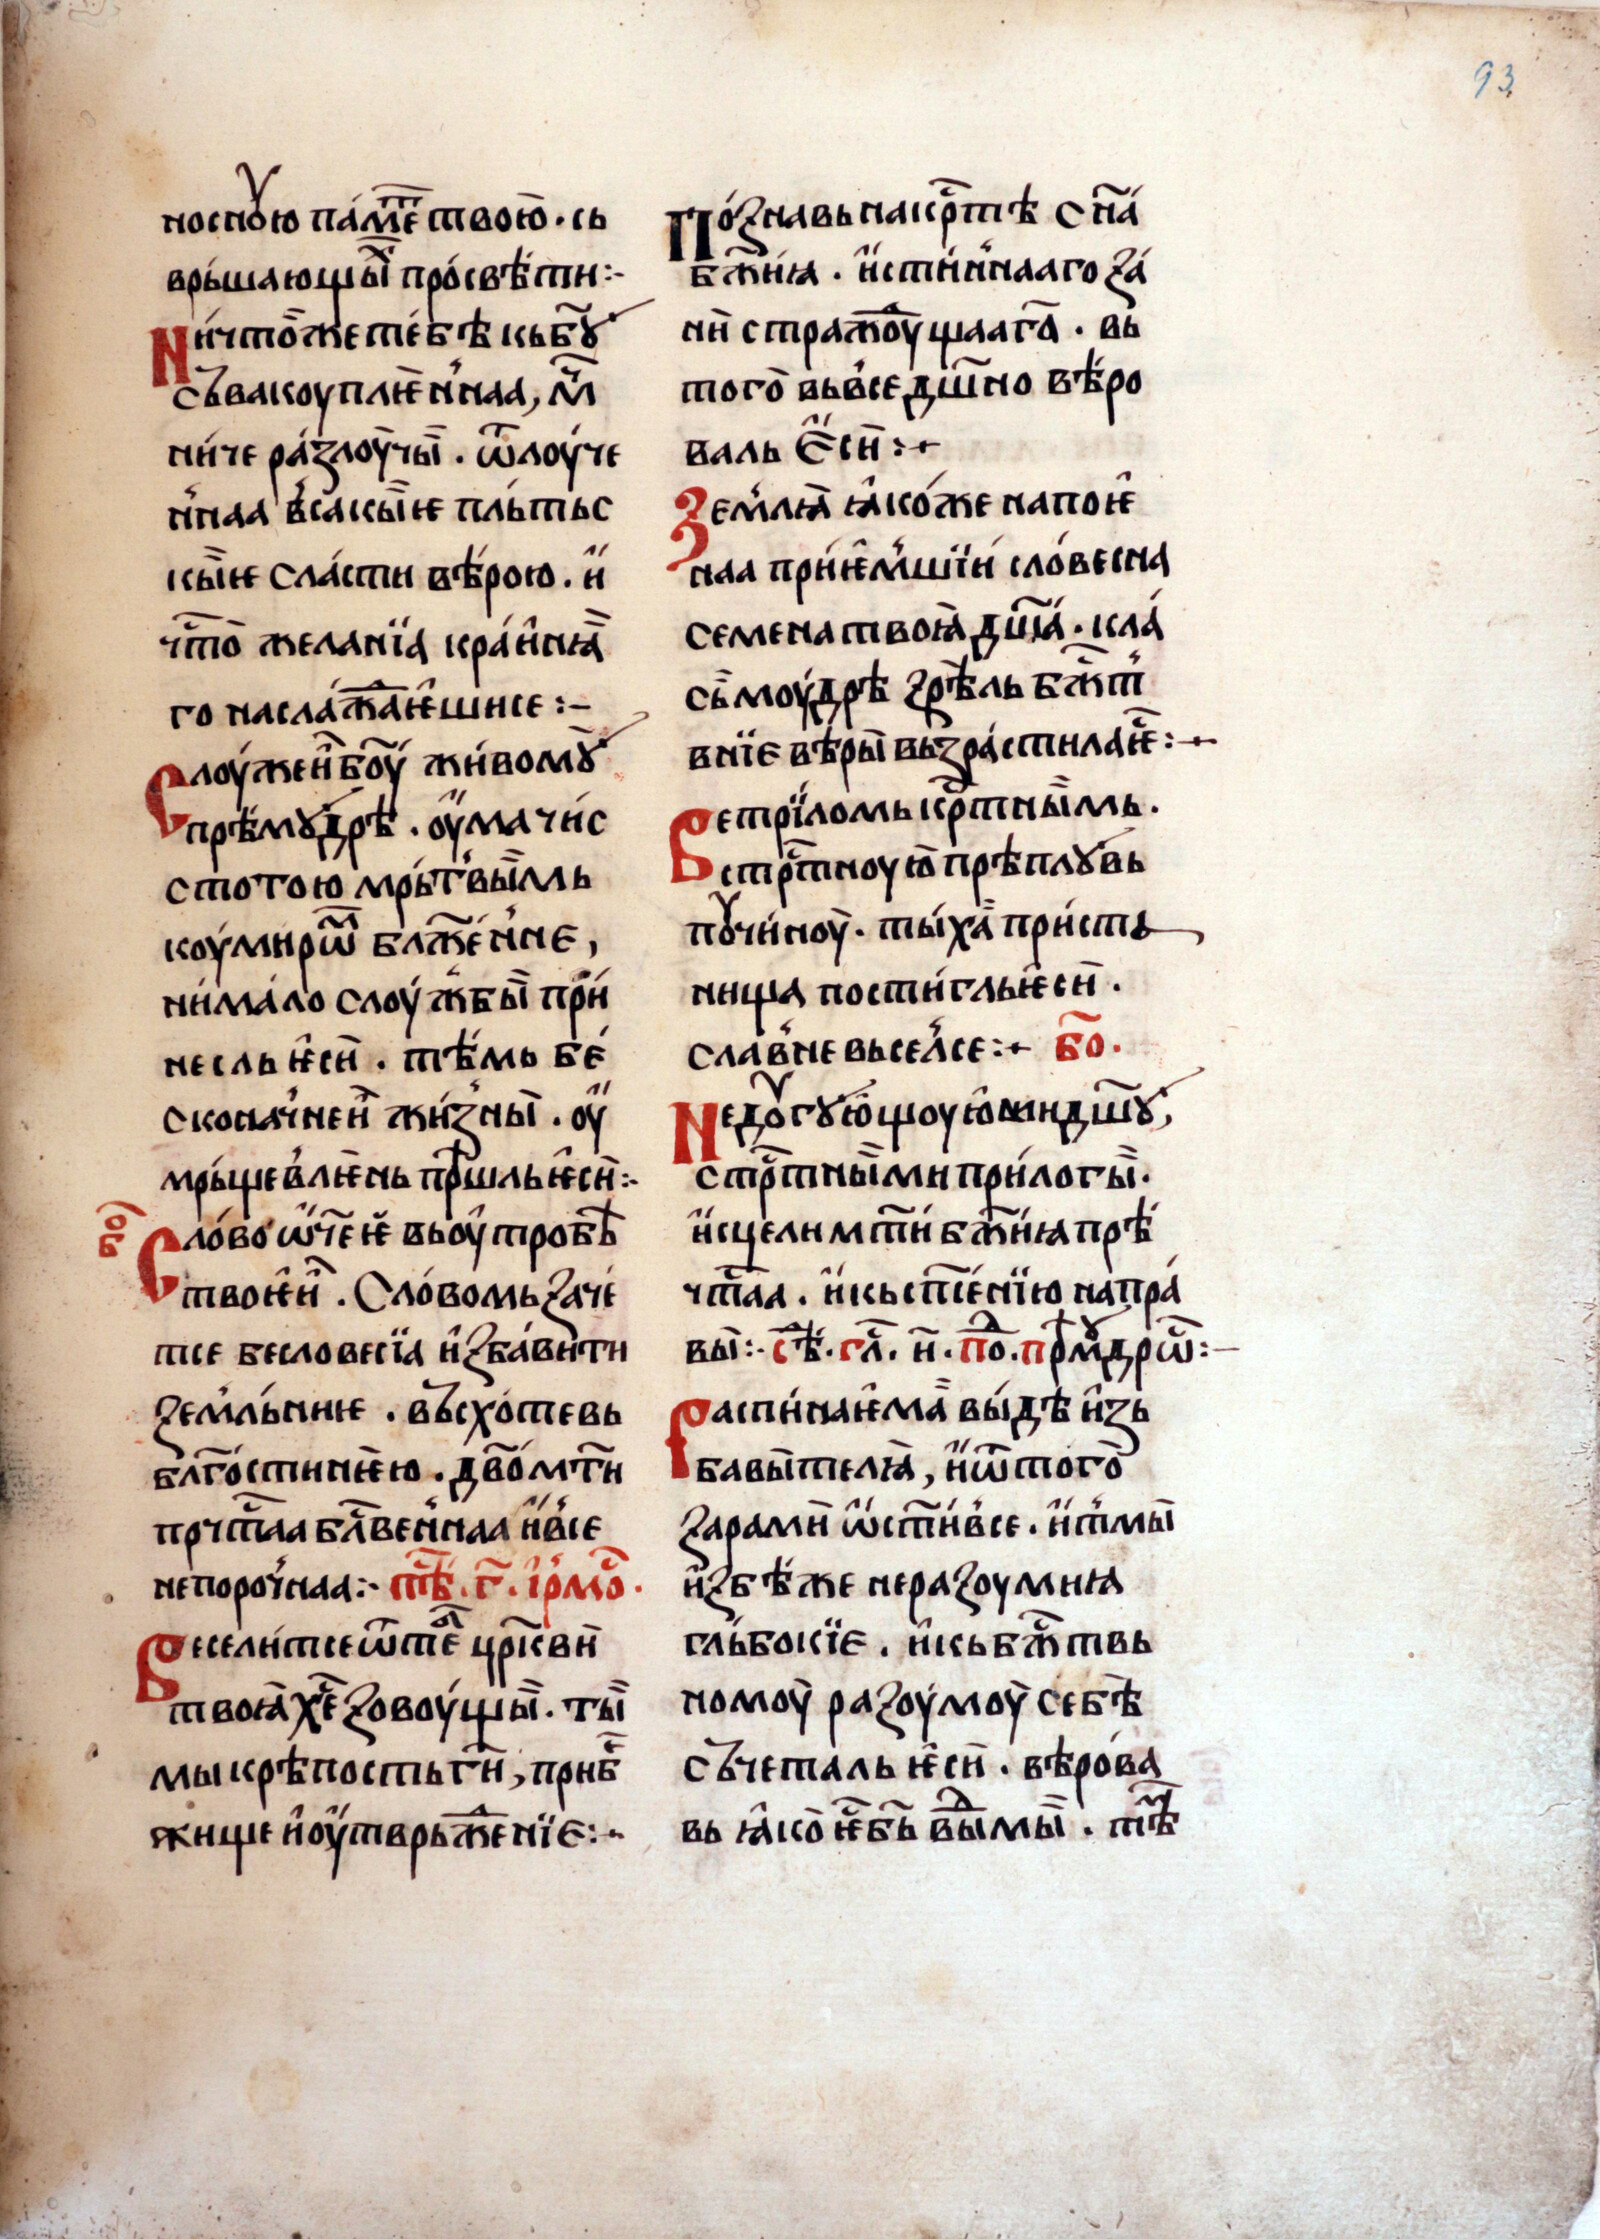 93
носною па́мет твою̀. съ
врьша́ющыих про́свѣти :~
Ни́что̀же те́бѣ къ бꙋ҃
съвакоуплѥн'наа, мч҃
ни́че ра́злоу́чы̀. ѿлоу́че
н'наа в'сакы̏ѥ пль́тьс
кы̏ѥ сла́сти вѣ́рою. и҆
чт҃о желанїа кра́инꙗ
го насла́жда̀ѥ҆шисе :~
Слоу́жен' бо҃у жи́вомꙋ̀
прѣ́мꙋдрѣ. ѹ҆ма чи́с
стотою мрь́твы̏мь
коуми́рѡм бл҃же́н'не,
ни́ма́ло слоу́ж'бы̀ при́
несль ѥ҆сѝ. тѣ́мь бе́
сконач'неи жи́зны̀. ѹ҆
мрь́щевлѥ́нь пр́шль ѥ҆сѝ :~
бо҃
Сло́во ѡ҆ч҃еѥ въ ѹ҆тробѣ̀
твоѥ҆и. Сло́вомь заче́
тсе бесловесїа и҆зба́вити
зем'льниѥ. въсхо́тевь
бл҃гостинѥ҆ю. дв҃о мт҃и
прчⷭ҇таа бл҃вен'наа и҆ в'се
непороч'наа :~ пѣⷭ҇. г҃. і҆рмоⷭ҇.
Весели́тсе ѡ тебⷷѣ цр҃квѝ
твоꙗ̀ хе҃ зовоу́щы̀. ты̏
мы крѣпость ги҃, прибѣ
жище и҆ ѹ҆тврьже́нїе :~
По́знавь на крⷭ҇тѣ с на́
бж҃иꙗ. и҆сти́н'нааго за́
нѝ стражⷣоущааго̀. вь
того̀ вьвседш҃но вѣ́ро
валь е҆сѝ :~
Зем'лꙗ̀ ꙗ҆ко́же напоѥ҆
наа прїи́ѥм'шїи сло́весна
семена твоꙗ̀ дш҃а. кла́
сь̀ моу́дрѣ зрѣ́ль бжⷭ҇т
внїе вѣ́ры̀ вьзра́стилаѥⷭ҇ :~
Ветрїломь крⷭ҇тны̏мь.
стрⷭ҇тноую прѣплꙋвь
пꙋчи́ноу̀. ты́ха̀ при́ста
нища пости́гль ѥ҆сѝ.
слав'не вьсел'се :~ бо҃.
Недꙋ́гꙋю҆щоую ми дш҃ꙋ,
стрⷭ҇тны̏ми при́логы̀.
и҆сцели мт҃и бж҃иꙗ прѣ́
чⷭ҇таа. и҆ кь сп҃се́нїю напра́
вы̀ :~ сѣⷣ. гл҃. и҃. поⷣ. прⷨмꙋдроⷭ҇ :~
Распи́наѥ҆ма̀ вы́дѣ и҆зь
бавы̀телꙗ̀, и҆ ѿ того̀
зарамѝ ѡ҆свⷭ҇тив'се. и҆ т'мы̀
и҆збѣ́же неразоумиꙗ
гль́бокїе. и҆ кь бжⷭ҇твь
номоу̀ разоу́моу̀ себѣ
съчеталь ѥ҆сѝ. вѣрова
вь ꙗ҆ко̀ ѥⷭ҇ бь҃ вⷣымы̀. тѣⷨ